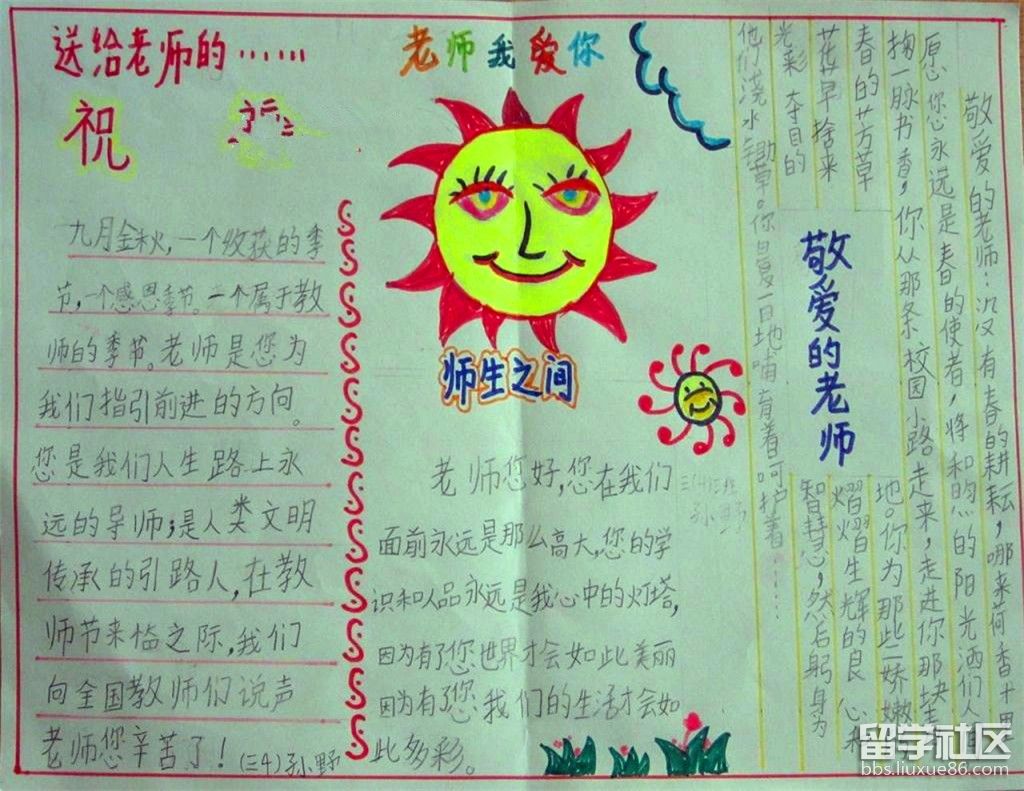 送给老师的……
祝
九月金秋，一个收获的季
节，一个感恩季节。一个属于教
师的季节。老师是您为
我们指引前进的方向。
您是我们人生路上永
远的导师；是人类文明
传承的引路人，在教
师节来临之际，我们
向全国教师们说声
老师您辛苦了！(三4)孙野
老师我爱你
师生之间
老师您好，您在我们
面前永远是那么高大，您的学
识和人品永远是我心中的灯塔，
因为有了您世界才会如此美丽
因为有了您我们的生活才会如
此多彩。
孙野
敬爱的老师
敬爱的老师：没有春的耕耘，哪来荷香十里
愿您您永远是春的使者，将和煦的阳光洒们人间
掬一脉书香，你从那条校园小路走来，走进你那块
春的芳草
地。你为那些娇嫩
花草捨来
熠熠生辉的良心和
光彩夺目的
智慧，然后躬身为
他们浇水锄草。你日复一日地哺育着呵护着……
留学社区
bbs.liuxue86.com